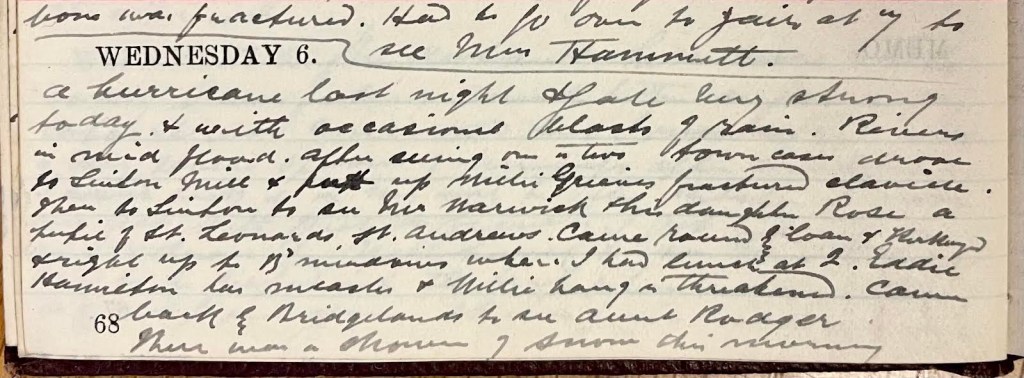 bone was fractured. Had to go over to Fairs at 7 to
WEDNESDAY 6. see Mrs Hammett.
a hurricane last night & gale very strong
today & with occasional blasts of rain. Rivers
in mid flood. After seeing one or two town cases drove
to Linton Mill & put up Millie Grieves fractured clavicle.
Then to Linton to see Mr Warwick & his daughter Rose a
pupil of St. Leonards, St. Andrews. Came round by loan &
& right up to B'meadows where I had lunch at 2. Eddie
Hamilton has measles & Millie Lang is threatened. Came
68 back by Bridgelands to see Aunt Rodger
There was a shower of snow this morning